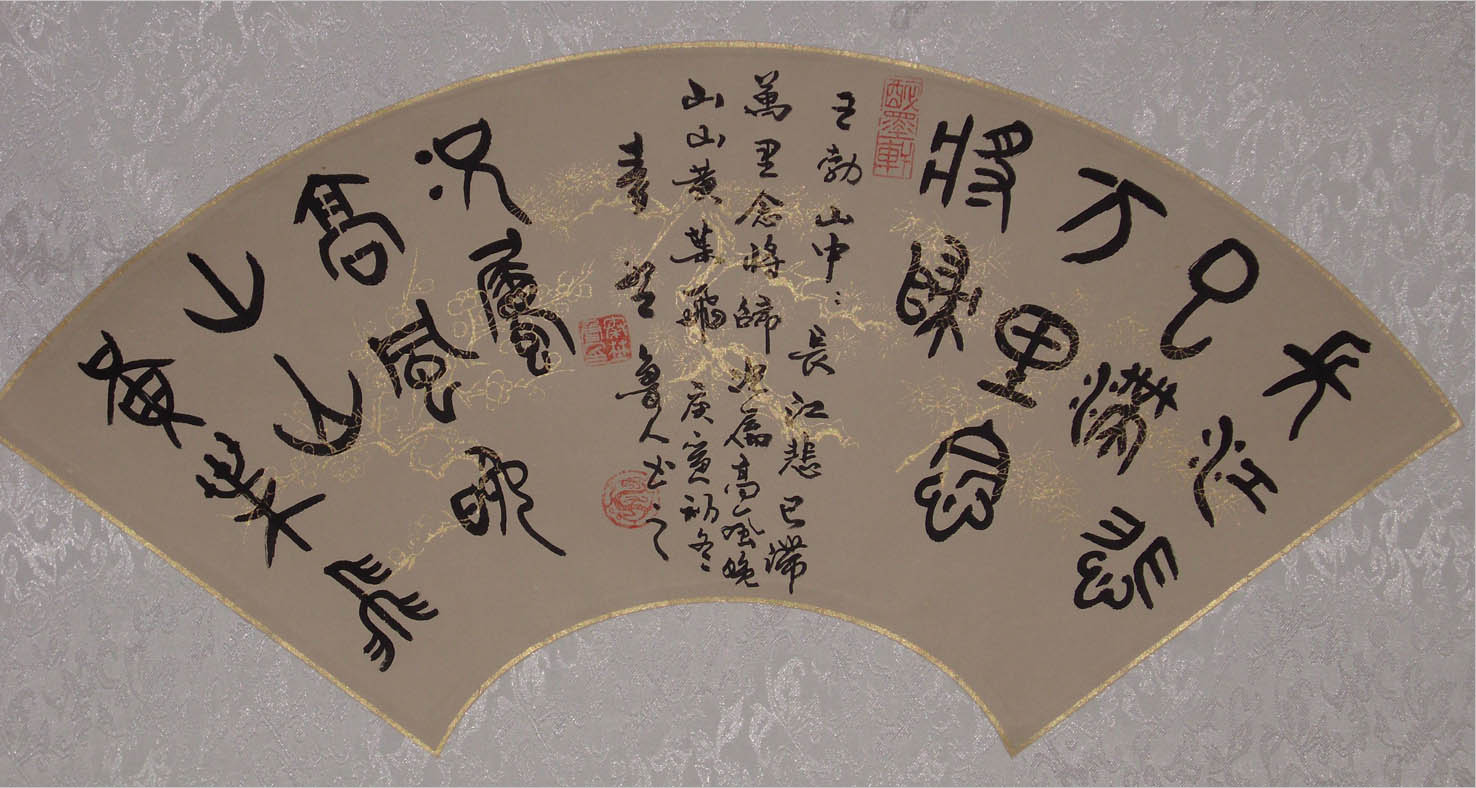 長江悲
已滯
万里念
將歸
王勃山中：長江悲已滯
萬里念將歸況屬高風晚
山山黄葉飛 庚寅初冬
魯人书之
況屬
高風晚
山山
黄葉飛